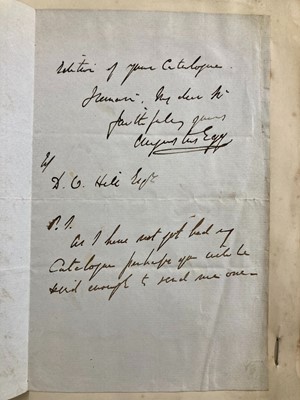 edition of your Catalogue.
I remain, My dear Sir
faithfully yours
Augustus Egg
To
D. O. Hill Esqre
P.S.
As I have not got had of
Catalogue perhaps you will be
kind enough to send me one—